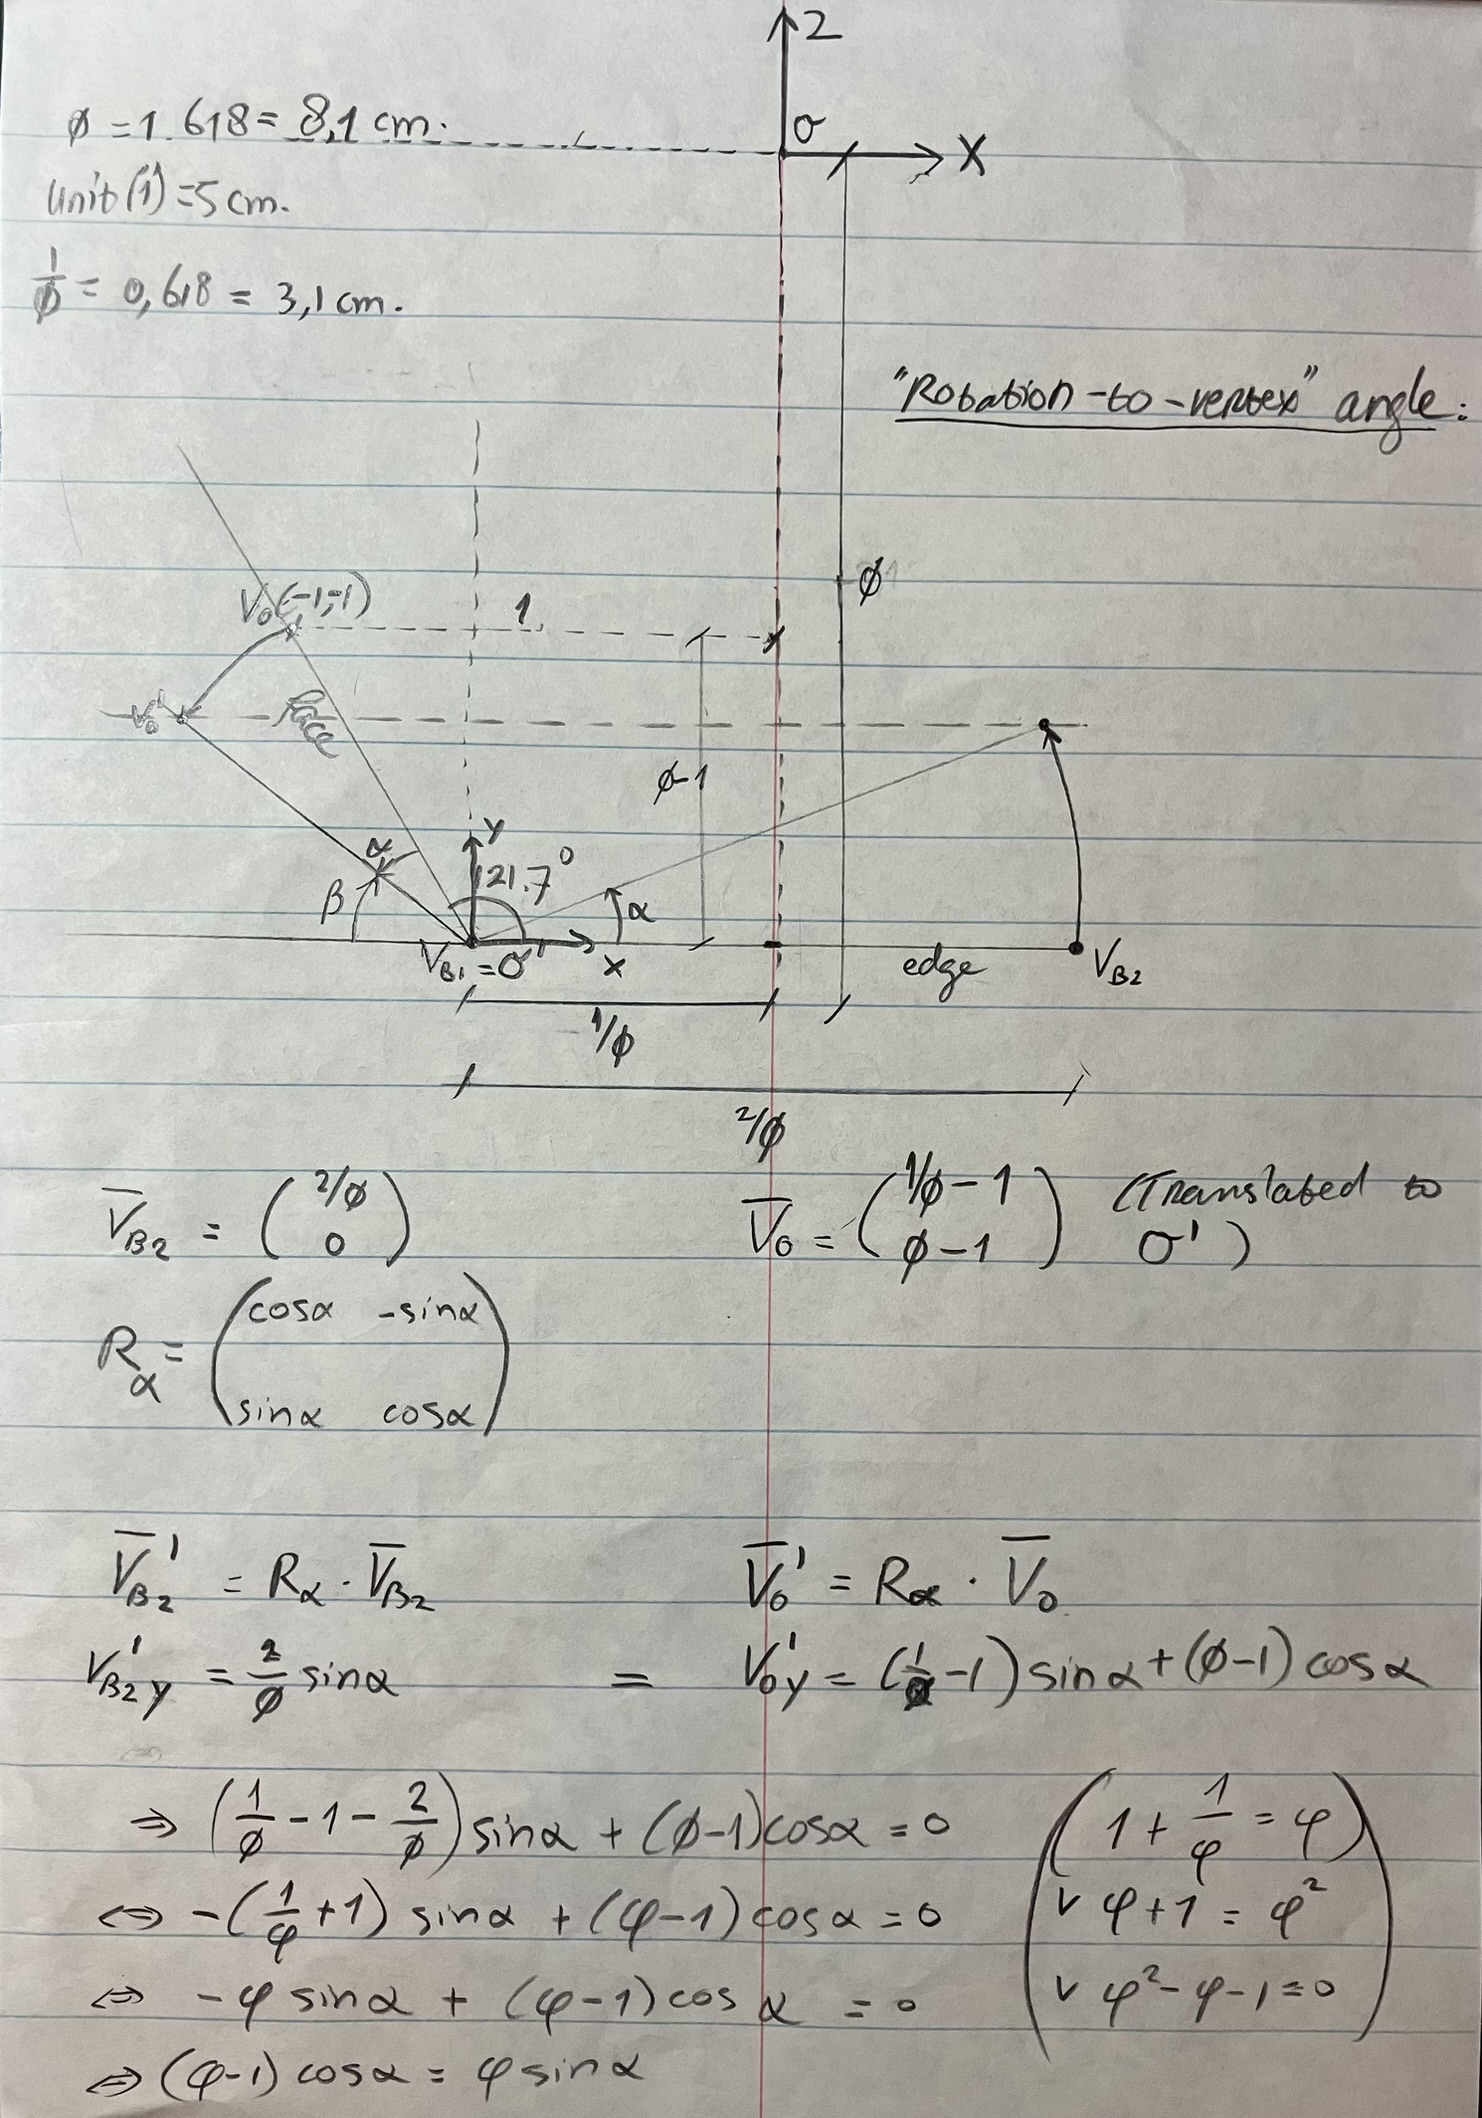 Z
ϕ = 1.618 = 8,1 cm.
O
X
Unit (1) = 5 cm.
1/ϕ = 0,618 = 3,1 cm.
"Rotation-to-vertex" angle:
ϕ
V₀(-1,-1)
1
V₀'
face
ϕ-1
α
y
121.7°
β
α
V_B1 = O'
x
edge
V_B2
1/ϕ
2/ϕ
V̅_B2 = (2/ϕ 0)
V̅₀ = (1/ϕ - 1 ϕ - 1) (Translated to O')
R_α = (cosα -sinα sinα cosα)
V̅_B2' = R_α · V̅_B2
V̅₀' = R_α · V̅₀
V_B2'y = 2/ϕ sinα = V₀'y = (1/ϕ - 1) sinα + (ϕ-1) cosα
⇒ (1/ϕ - 1 - 2/ϕ) sinα + (ϕ-1)cosα = 0
(1 + 1/φ = φ)
⇔ -(1/φ + 1) sinα + (φ-1) cosα = 0
∨ φ + 1 = φ²
⇔ -φ sinα + (φ-1) cos α = 0
∨ φ² - φ - 1 = 0
⇔ (φ-1) cosα = φ sinα